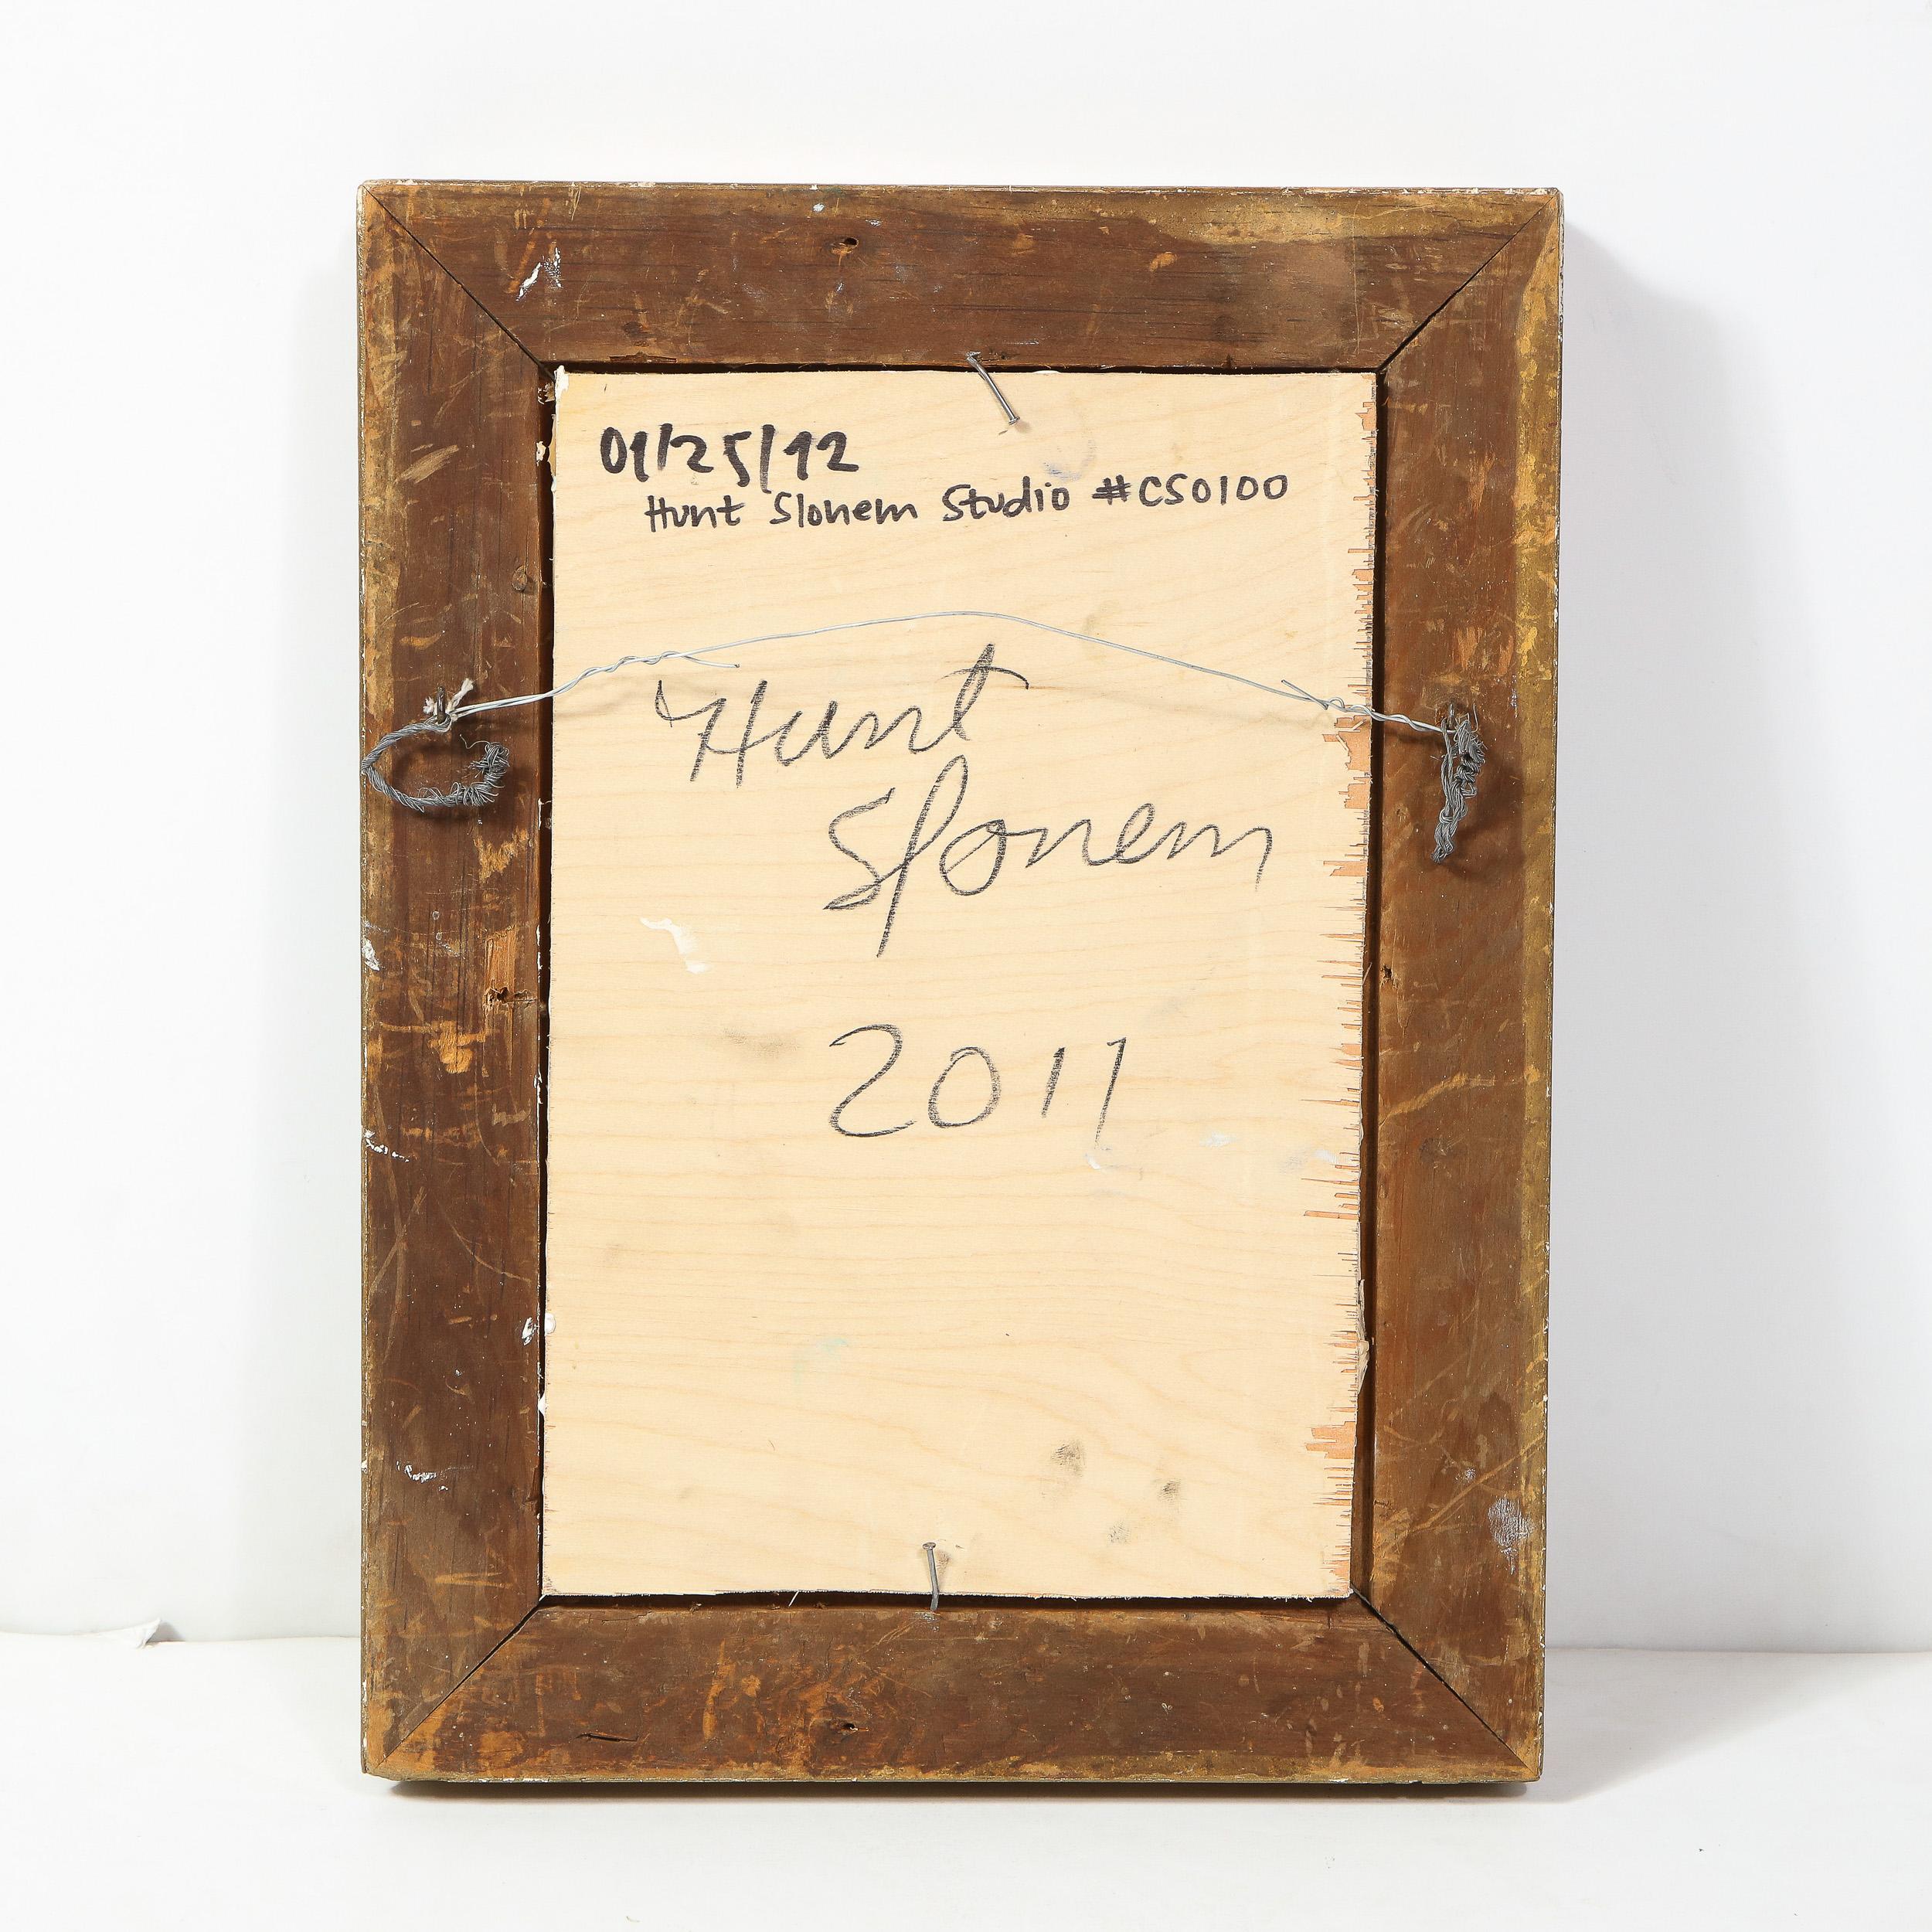 01/25/12
Hunt Slonem Studio #CS0100
Hunt
Slonem
2011